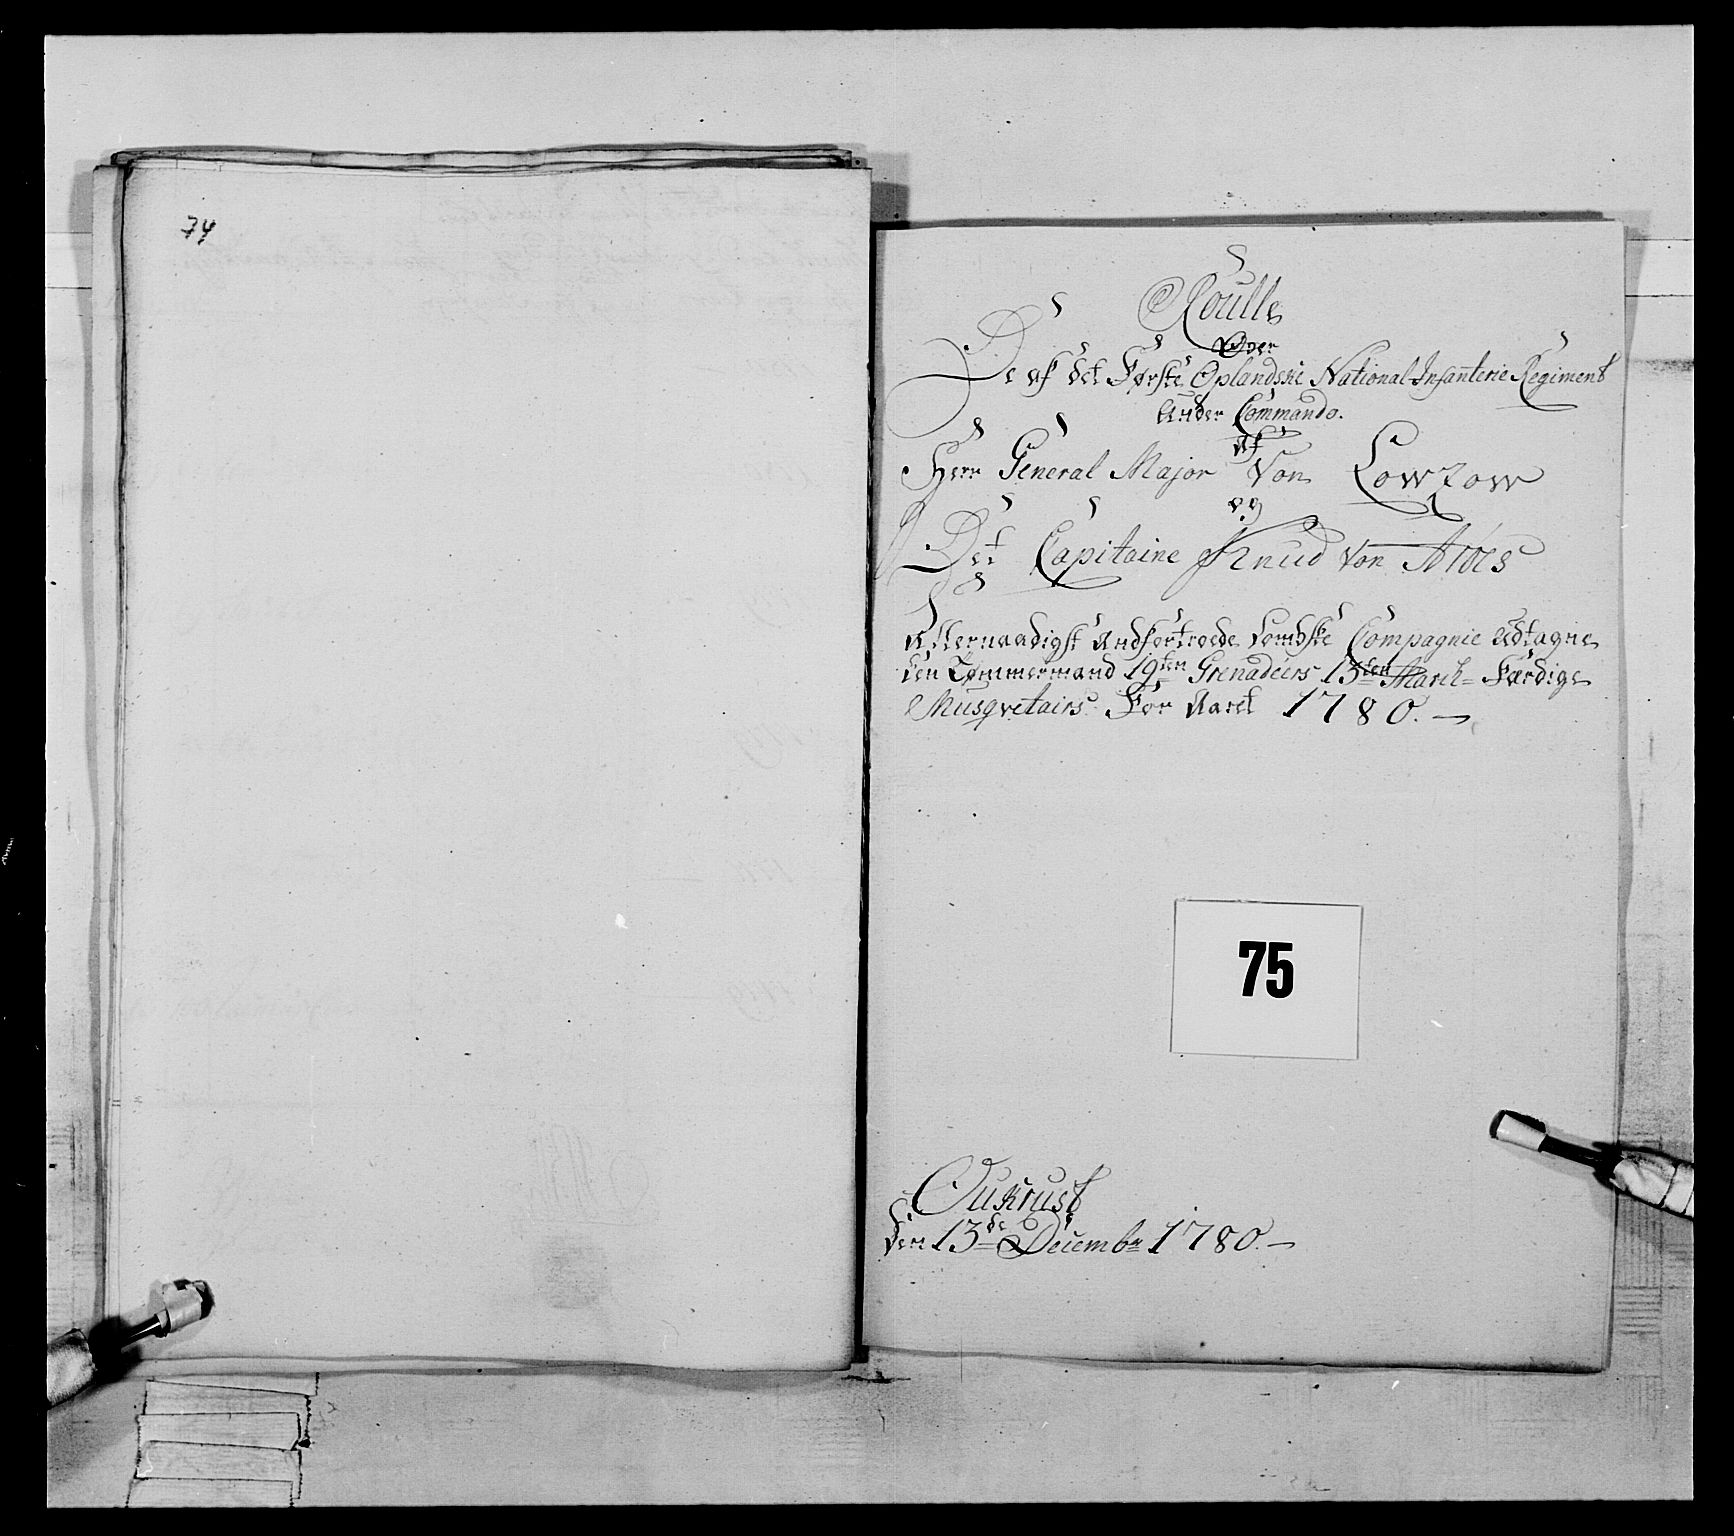 74
Roulle
Over
De af det Første Oplandske National Infanterie Regiment
Under Commando.
af
Herr General Major Von Lowzow
og
Det Capitaine Knud von
Allernaadigst Andfortroede Lomske Compagnie Udtagne
Een Tømmermand 19ten Grenadeers 13ten March= Færdige
Musqvetairs For Aaret 1780.—
75
Oukrust
den 13de Decembr 1780.—